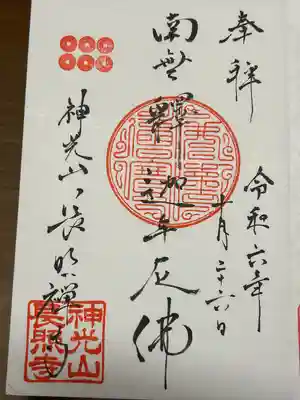 奉拝
令和六年
十月二十六日
南無釋迦牟尼佛
神光山長照禪寺
神光山
長照寺